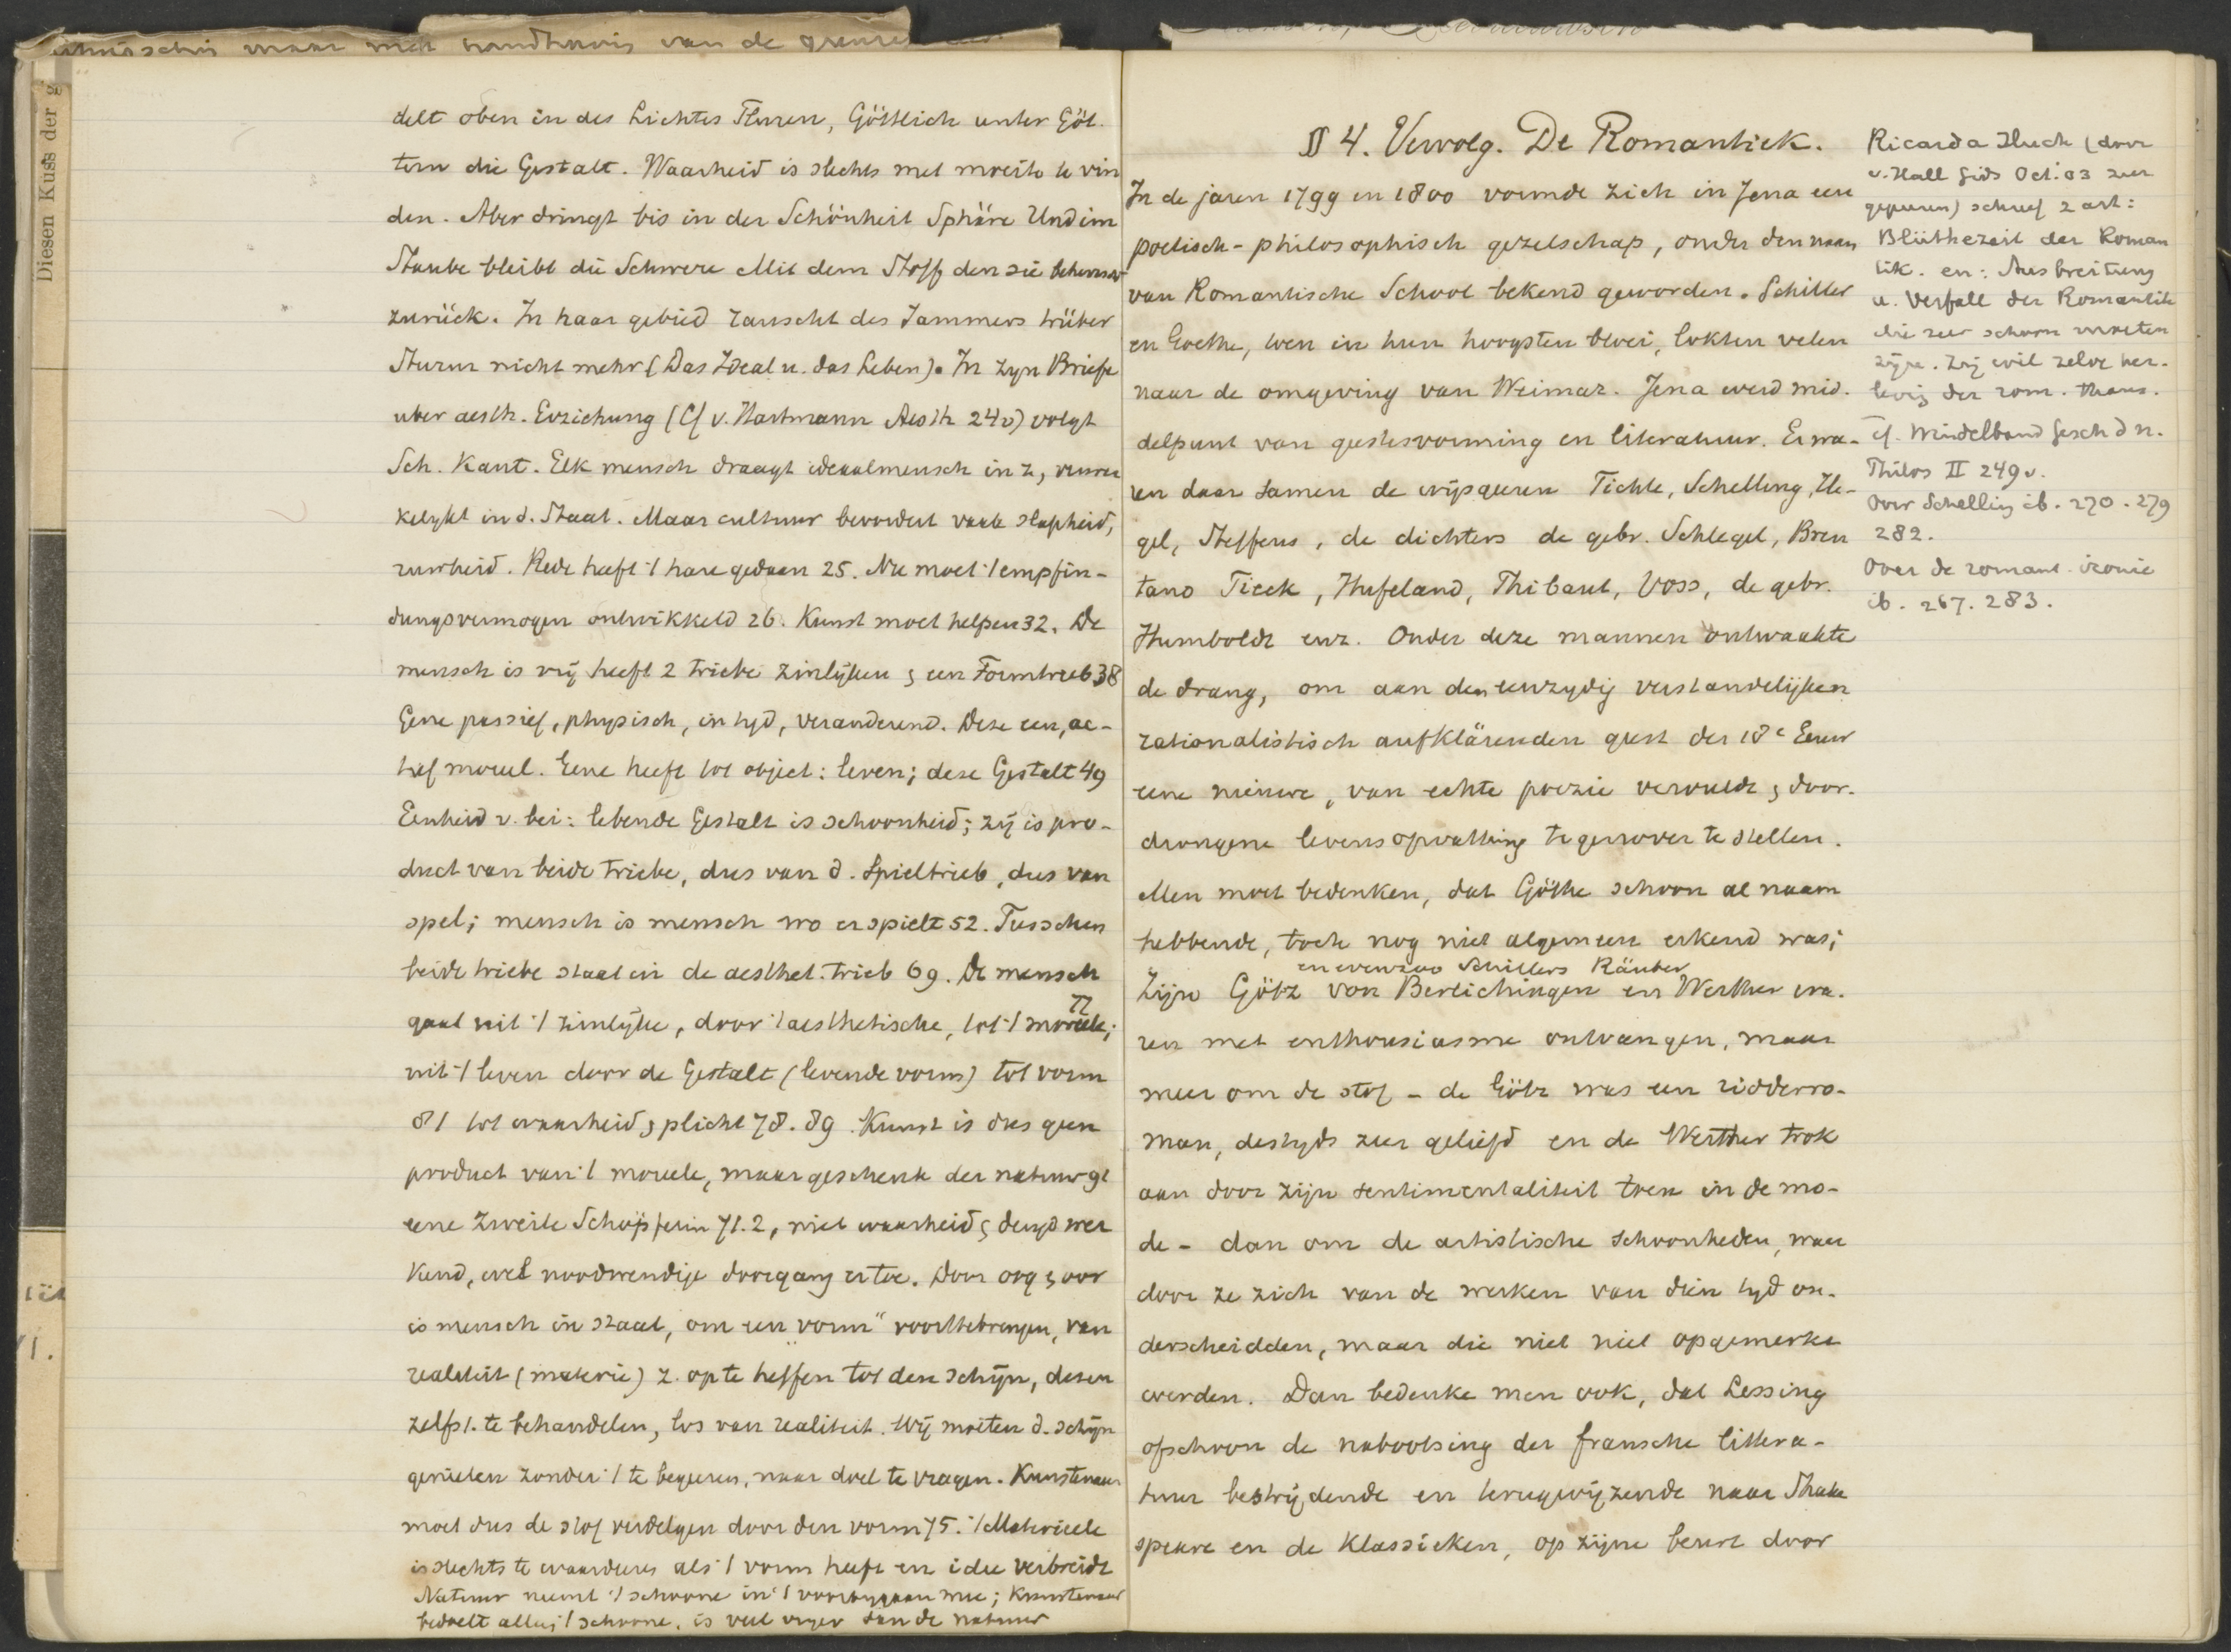 Diesen Kuss der g
maar met van de
delt oben in des Lichtes Fluren, Göttlich unter Göt-
tern die Gestalt. Waarheid is slechts met moeite te vin
den. Aber dringt bis in der Schönheit Sphäre Und im
Staube bleibt die Schwere Mit dem Stoff den sie beherrscht
zurück. In haar gebied rauscht des Jammers trüber
Sturm nicht mehr (Das Ideal u. das Leben). In zyn Briefe
uber aesth. Erziehung (Cf v. Hartmann Aesth 24v) volgt
Sch. Kant. Elk mensch draagt ideaalmensch in z,
kelykt in d. Staat. Maar cultuur bevordert vaak slapheid,
ruwheid. Rede heeft 't hare gedaan 25. Nu moet 't empfin-
dungsvermogen ontwikkeld 26. Kunst moet helpen 32. De
mensch is vrij heeft 2 triebe zinlijken & een Formtrieb 38
Gene passief, physisch, in tyd, veranderend. Deze een, ac-
tief moreel. Gene heeft tot object: leven; deze Gestalt 49
Eenheid v. bei: lebende Gestalt is schoonheid; zij is pro-
duct van beide triebe, dus van d. Spieltrieb, dus van
spel; mensch is mensch wo er spielt 52. Tusschen
beide triebe staat in de aesthet. trieb 69. De mensch
gaat uit 't zinlijke, door 't aesthetische, tot 't moreele; 72
uit 't leven door de Gestalt (levende vorm) tot vorm
81 tot waarheid & plicht 78. 89. Kunst is dus geen
product van 't moreele, maar geschenk der natuur 91
eene zweite Schöpferin 71.2, niet waarheid & deugd wer
kend, wel noodwendige doorgang ertoe. Door oog & oor
is mensch in staat, om een „vorm" voorttebrengen, van
realiteit (materie) z. op te heffen tot den schijn, dezen
zelfst. te behandelen, los van realiteit. Wij moeten d. schijn
genieten zonder 't te begeeren, naar doel te vragen. Kunstenaar
moet dus de stof verdelgen door den vorm 75. 't Materieele
is slechts te waarderen als 't vorm heeft en idee verbreidt
Natuur neemt 't schoone in 't voorbygaan mee; Kunstenaar
bedoelt alleen 't schoone, is veel vryer dan de natuur
§ 4. Vervolg. De Romantiek.
In de jaren 1799 en 1800 vormde zich in Jena een
poetisch-philosophisch gezelschap, onder den naam
van Romantische School bekend geworden. Schiller
en Goethe, toen in hun hoogsten bloei, lokten velen
naar de omgeving van Weimar. Jena werd mid-
delpunt van geestesvorming en literatuur. Er wa-
ren daar samen de wijsgeeren Fichte, Schelling, He-
gel, Steffens, de dichters de gebr. Schlegel, Bren
tano Tieck, Hufeland, Thibaut, Voss, de gebr.
Humboldt enz. Onder deze mannen ontwaakte
de drang, om aan den eenzydig verstandelijken
rationalistisch aufklärenden geest der 18e Eeuw
eene nieuwe, van echte poezie vervulde & door-
drongene levensopvatting tegenover te stellen.
Men moet bedenken, dat Göthe schoon al naam
hebbende, toch nog niet algemeen erkend was;
en evenzoo Schillers Räuber
Zijn Götz von Berlichingen en Werther wa-
ren met enthousiasme ontvangen, maar
meer om de stof - de Götz was een ridderro-
man, destyds zeer geliefd en de Werther trok
aan door zijn sentimentaliteit toen in de mo-
de - dan om de artistische schoonheden, waar
door ze zich van de werken van dien tyd on-
derscheidden, maar die niet niet opgemerkt
werden. Dan bedenke men ook, dat Lessing
ofschoon de nabootsing der fransche littera-
tuur bestrijdende en terugwijzende naar Shake
speare en de Klassieken, op zijne beurt door
Ricarda Huch (door
v. Hall Gids Oct. 03 zeer
geprezen) schreef 2 art:
Blüthezeit der Roman
tik. en: Ausbreitung
u. Verfall der Romantik
die zeer schoon moeten
zijn. Zij wil zelve her-
levig der rom. thans.
cf. Windelband Gesch d n.
Philos II 249v.
Over Schelling ib. 270. 279
282.
Over de romant. ironie
ib. 267. 283.